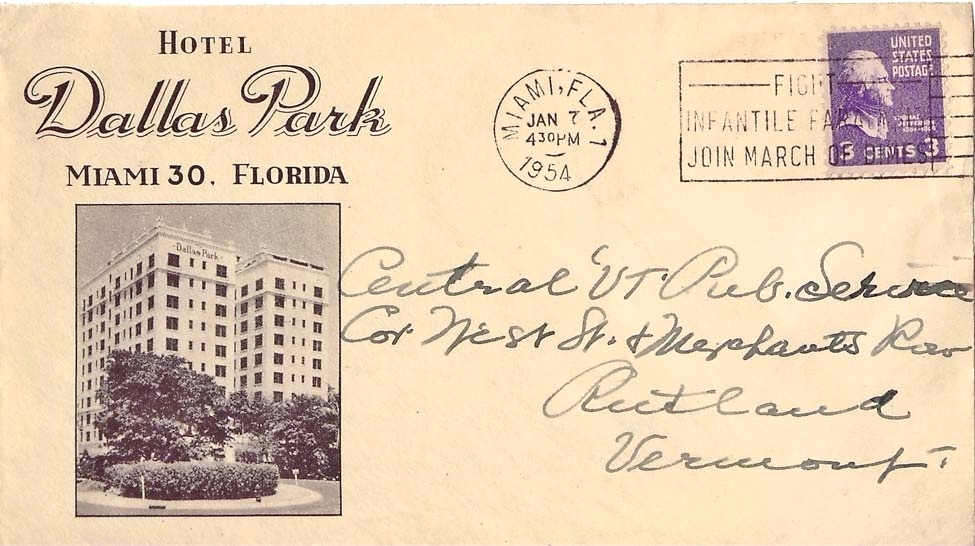 HOTEL
Dallas Park
MIAMI 30, FLORIDA
Dallas Park
MIAMI, FLA. 1
JAN 7
430PM
1954
FIGHT
INFANTILE PARALYSIS
JOIN MARCH OF DIMES
UNITED
STATES
POSTAGE
THOMAS
JEFFERSON
3 CENTS 3
Central VT Pub. Service
Cor West St. & Merchants Row
Rutland
Vermont.